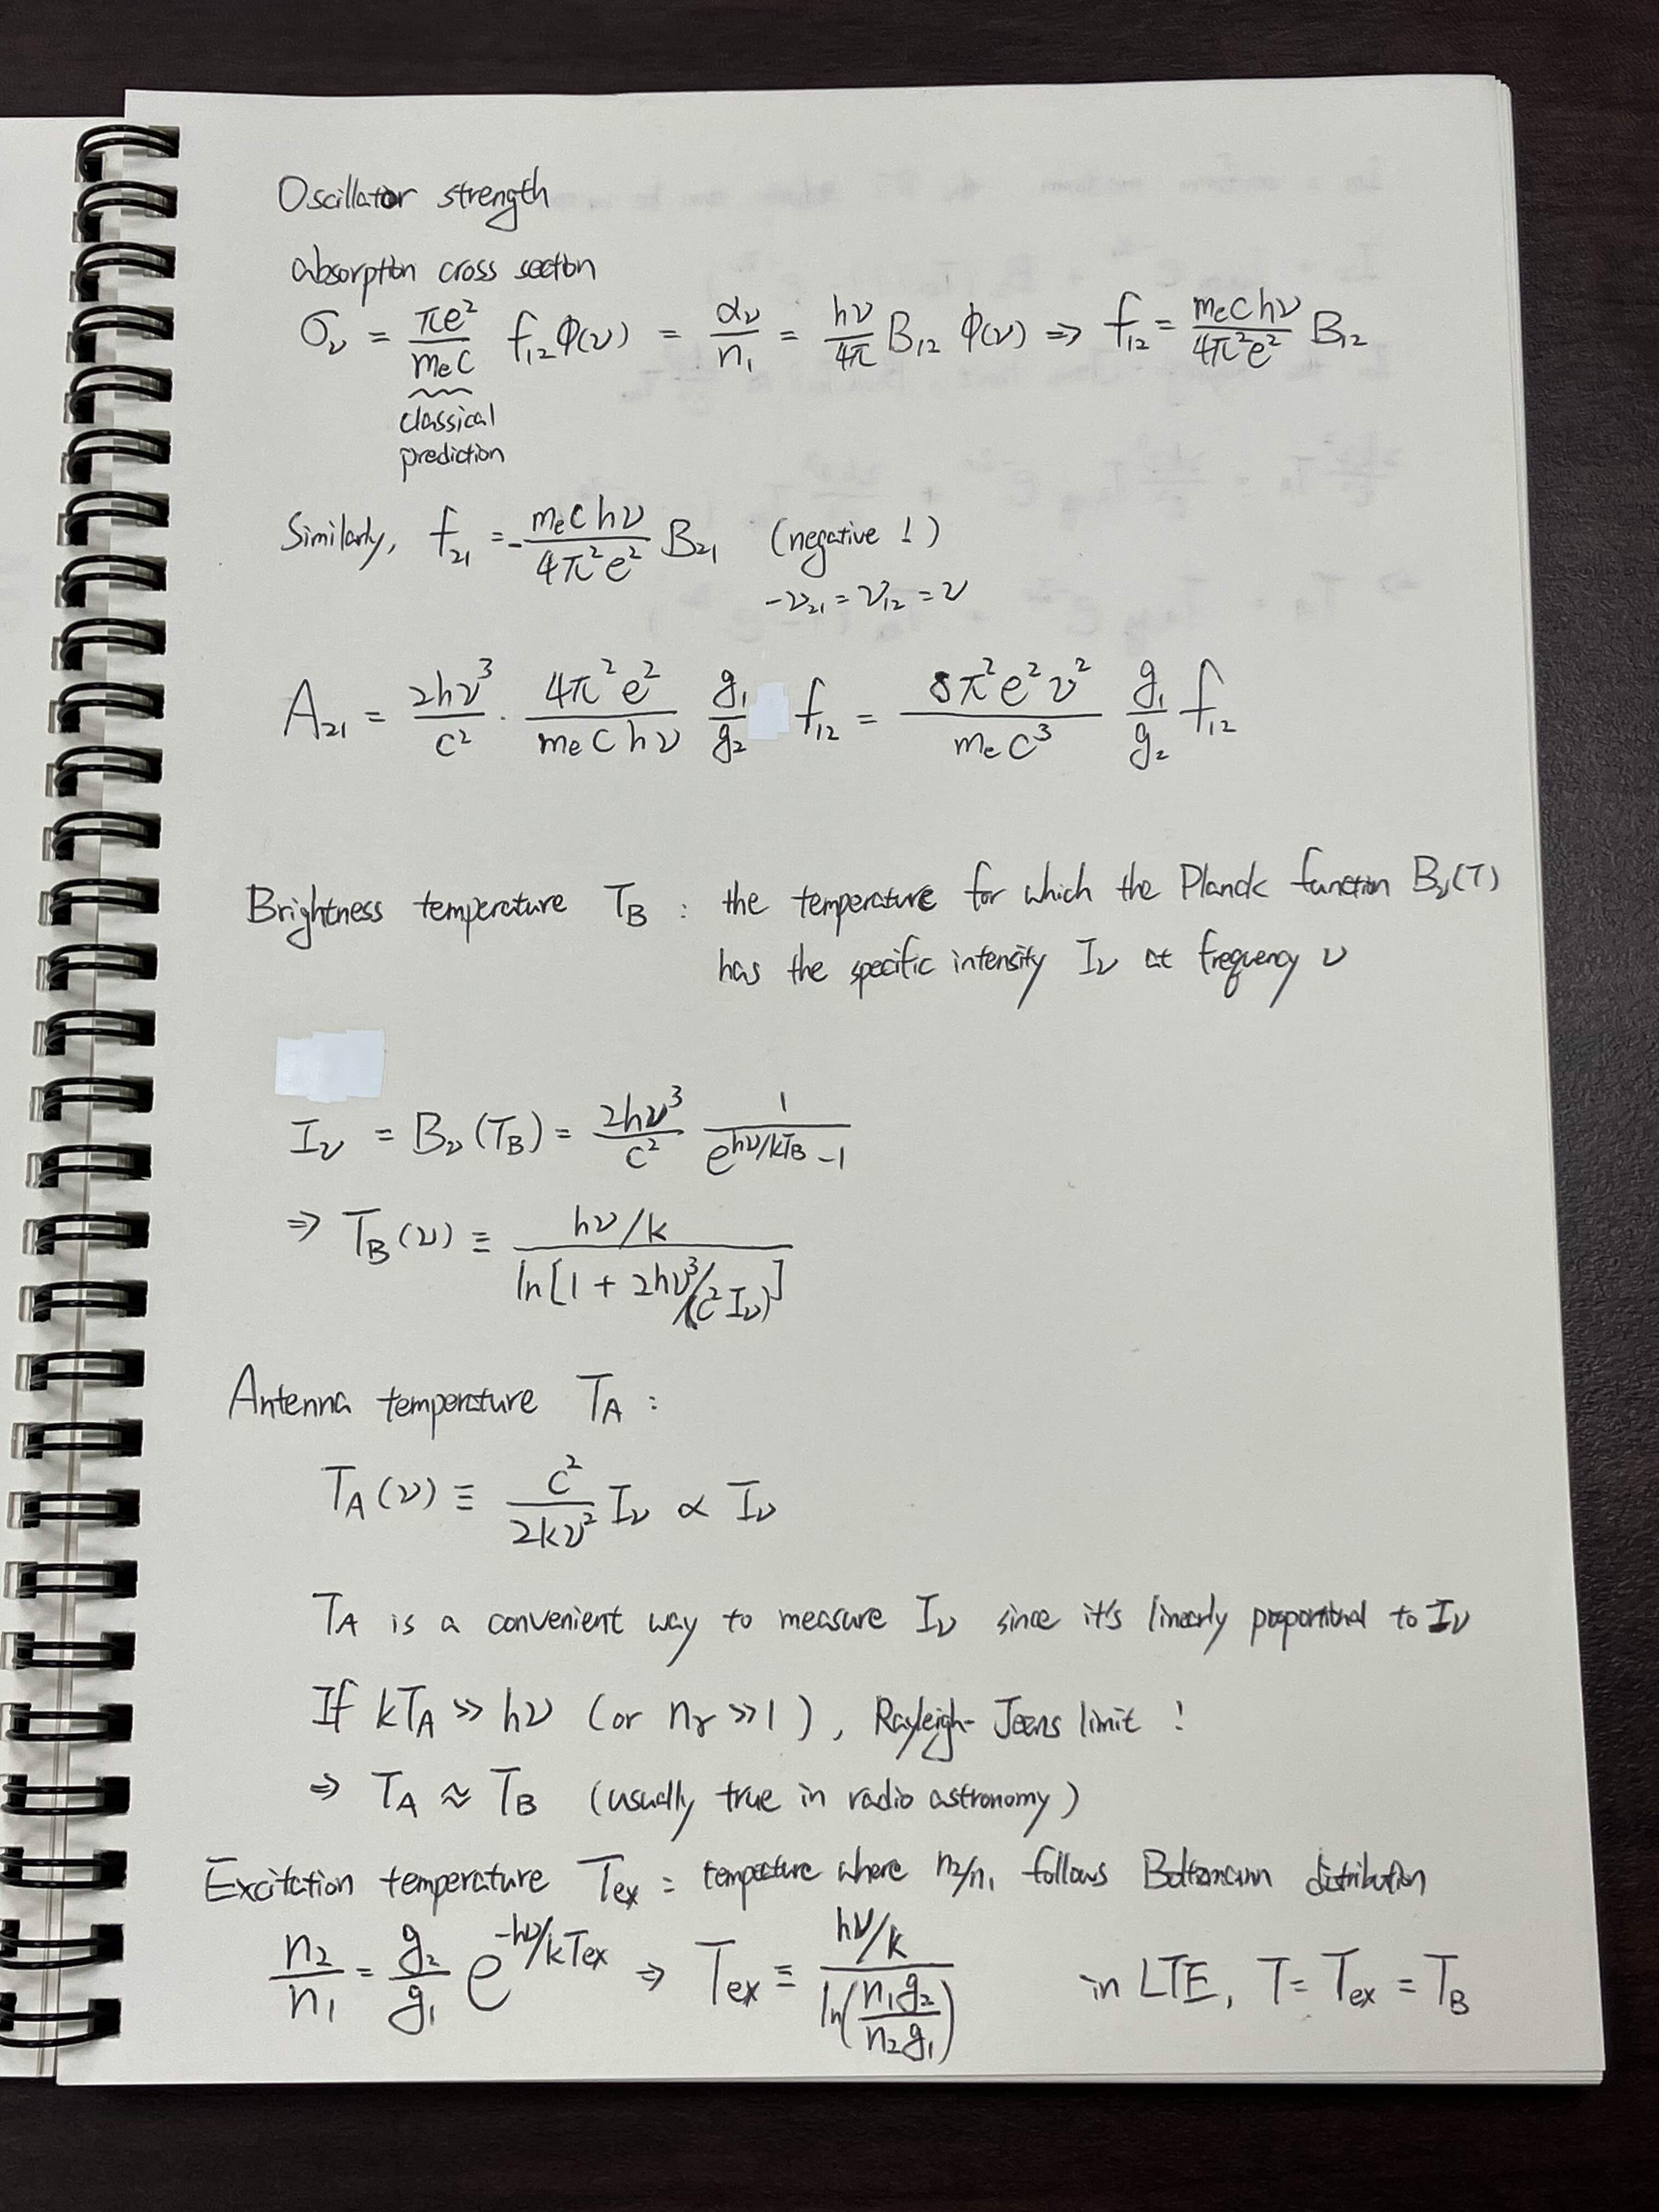 Oscillator strength
absorption cross section
σ_ν = πe²/(m_e c) f₁₂ φ(ν) = α_ν/n₁ = hν/4π B₁₂ φ(ν) ⇒ f₁₂ = m_e c hν/(4π²e²) B₁₂
classical
prediction
Similarly, f₂₁ = - m_e c hν/(4π²e²) B₂₁ (negative !)
-ν₂₁ = ν₁₂ = ν
A₂₁ = 2hν³/c² · 4π²e²/(m_e c hν) g₁/g₂ f₁₂ = 8π²e²ν²/(m_e c³) g₁/g₂ f₁₂
Brightness temperature T_B : the temperature for which the Planck function B_ν(T)
has the specific intensity I_ν at frequency ν
I_ν = B_ν(T_B) = 2hν³/c² 1/(e^{hν/kT_B} - 1)
⇒ T_B(ν) ≡ (hν/k) / ln[1 + 2hν³/(c² I_ν)]
Antenna temperature T_A :
T_A(ν) ≡ c²/(2kν²) I_ν ∝ I_ν
T_A is a convenient way to measure I_ν since it's linearly proportional to I_ν
If kT_A ≫ hν (or n_γ ≫ 1), Rayleigh-Jeans limit !
⇒ T_A ≈ T_B (usually true in radio astronomy)
Excitation temperature T_ex = temperature where n₂/n₁ follows Boltzmann distribution
n₂/n₁ = g₂/g₁ e^{-hν/kT_ex} ⇒ T_ex ≡ (hν/k) / ln(n₁g₂/n₂g₁) in LTE, T = T_ex = T_B